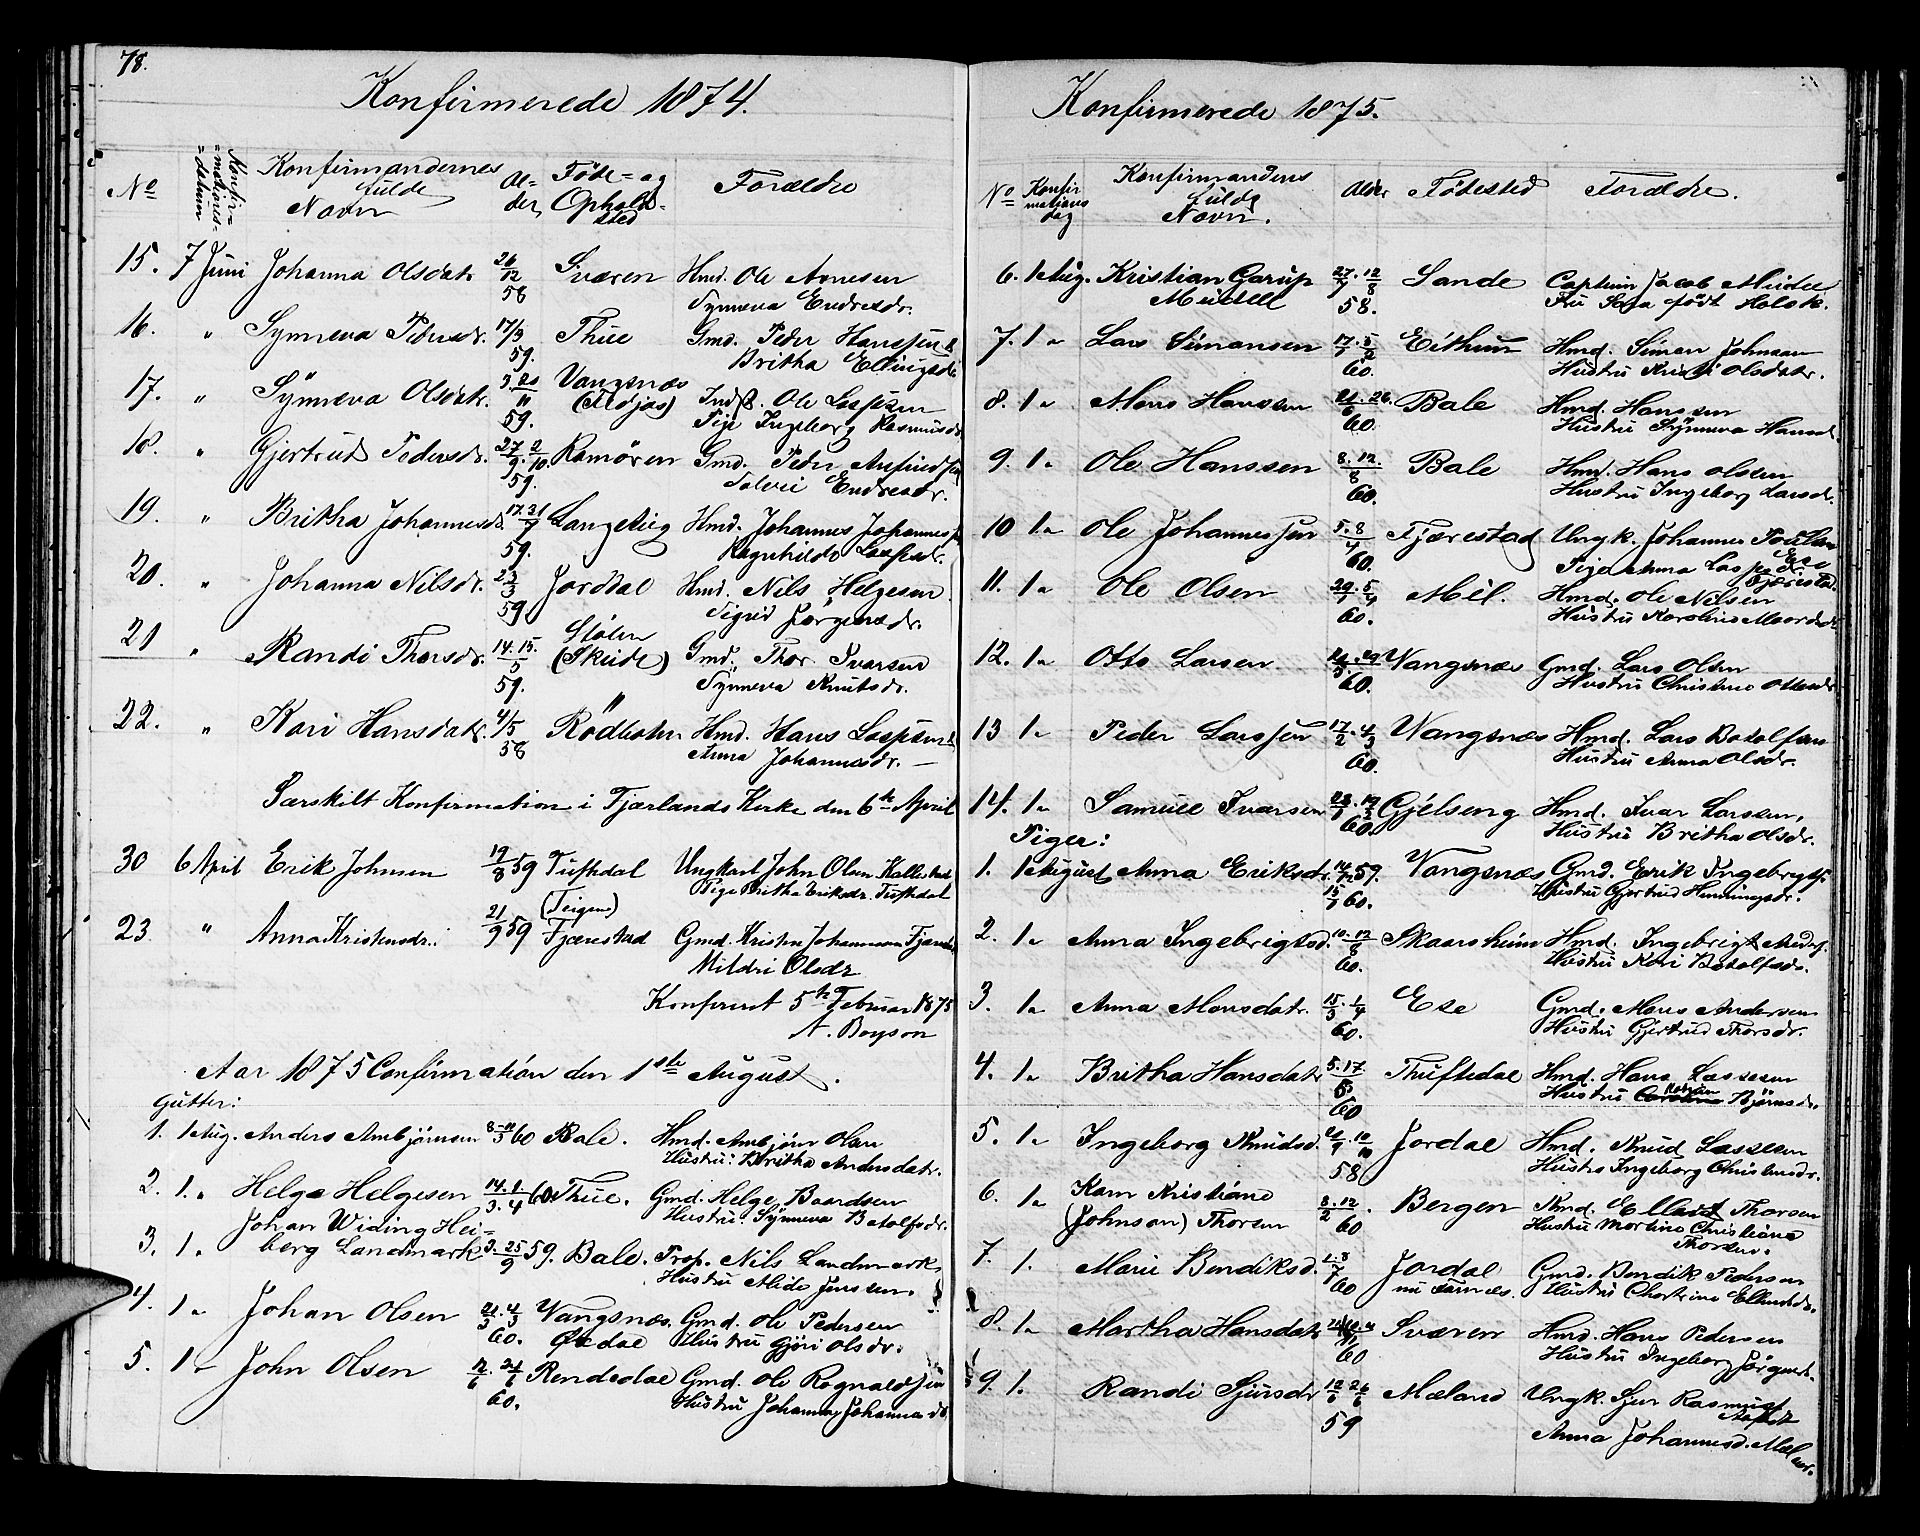 78.
Konfirmerede 1874.
No
Konfir=
=mations=
=datum
Konfirmandernes
fulde
Navn
Al=
der,
Føde= og
Opholds=
sted
Forældre
15. 7 Juni Johanna Olsdatr. 26/12 58 Sværen Hmd. Ole Arnesen
Synneva Endresdr.
16. " Synneva Pedersdr. 17/9 59. Thue Gmd. Peder Hanssen &
Britha Ellingsdr.
17. " Synneva Olsdatr. 59. Vangsnæs Inds. Ole Lassesen
Pige Ingeborg Rasmusdr.
18. " Gjertrud Pedersdr. 27/9. 2/10. 59. Ramøren Gmd. Peder Anfindsen
Endresdr.
19. " Britha Johannesd. 17.31/7 59. Langeteig Hmd. Johannes Johannessen
Ragnhilda Lassesdr.
20. " Johanna Nilsdr. 23/3 59 Jordal Hmd. Nils Helgesen
Sigrid Jørgensdr.
21 " Randi Thorsdr. 14.15./5 59. Stølen
(Skeide) Gmd. Thor Ivarsen
Synneva Knutsdr.
22. " Kari Hansdatr. 4/5 58 Rødholm Hmd. Hans Lassesen &
Anna Johannesdr.
Særskilt Konfirmation i Fjærlands Kirke den 6te April
30 6 April Erik Johnsen 19/8 59 Tufthdal Ungkarl John Olsen
Pige Britha Eriksdr. Tufthdal
23 " Anna Kristensdr. 21/9 59 (Teigen)
Fjærestad Gmd. Kristen Johannesen
Mildri Olsdr
Konfereret 5te Februar 1875
A. Boyson
Aar 1875 Confirmation den 1ste August.
Gutter:
1. 1 Aug. Anders Ambjørnsen 60 Bale. Hmd. Ambjørn Olsen
Hustru: Britha Andersdatr.
2. 1. " Helge Helgesen 14/3. 1/4 60 Thue. Gmd. Helge Baardsen
Hustru: Synneva Botolfsdr.
3. 1. " Johan Widing Hei=
berg Landmark 3. 25/9 59. Bale. Prop. Nils Landmark,
Hustru Mide Jenssen.
4. 1 " Johan Olsen 60. Vangsnæs. Gmd. Ole Pedersen
Hustru Gjøri Olsdr.
5. 1 " John Olsen 60. Rendedal Gmd. Ole Rognaldsen
Hustru Johanna Johannesdr.
Konfirmerede 1875.
No
Konfir
mations
dag
Konfirmandens
fulde
Navn.
Alder
Fødested
Forældre.
6. 1 Aug. Kristian Garup
Meidell 27/7. 12/8 58. Sande Captein Jacob Meidell
Fru født Holck.
7. 1 " Lars Simonsen 60. Eithun Hmd. Simon Johnsen
Hustru Olsdatr.
8. 1 " Mons Hanssen 60. Bale Hmd. Hanssen
Hustru Synneva Hansd.
9. 1 " Ole Hanssen 8.12./8 60. Bale Hmd. Hans Olsen
Hustru Ingeborg Larsd.
10 1 " Ole Johannessen 5.8/4 60. Fjærestad Ungk. Johannes
Pige Anna Lassesdr.
Fjærestad
11. 1 " Ole Olsen 60. Mel. Hmd. Ole Nilsen
Hustru Karolina
12. 1 " Otto Larsen 60. Vangsnæs Gmd. Lars Olsen
Hustru Christine Ottesdr
13 1 " Peder Larssen 17/2. 4/3 60. Vangsnæs Hmd. Lars Botolfsen
Hustru Anna Olsdr.
14. 1 " Samuel Ivarsen 60. Gjelseng Hmd. Ivar Larssen,
Hustru Britha Olsdr.
Piger:
1. 1 August Anna Eriksdr. 59. 60. Vangsnæs Gmd. Erik Ingebrigts.
Hustru Gjertrud Henningsdr.
2. 1 " Anna Ingebrigtsd. 10. 12/8 60. Skaarsheim Hmd. Ingebrigt
Hustru Kari Botolfsdr.
3 1 " Anna Monsdatr. 15/3. 1/4 60. Ese Gmd. Mons Andersen
Hustru Gjertrud Thorsdr.
4. 1 " Britha Hansdatr 5.17 60 Thuftedal Hmd. Hans Lassesen
Hustru Bjørnsdr.
5. 1 " Ingeborg Knudsd. 58 Jordal Hmd. Knud Lassesen
Hustru Ingeborg Christensdr.
6. 1 " Karn Kristiane
(Johnson) Thorsen 8.12./2 60 Bergen Thorsen
Hustru Martine Christiane
Thorsen.
7. 1. Marie Bendiksd. 1.8/7 60 Jordal
nu Farnæs. Gmd. Bendik Pedersen
Hustru
8. 1 " Martha Hansdatr 60 Sværen Hmd. Hans Pedersen
Hustru Ingeborg Jørgensd.
9. 1. Randi Sjursdr 12/6 26/6 59 Mæland Ungk. Sjur Rasmuss.
Anna Johannesd.